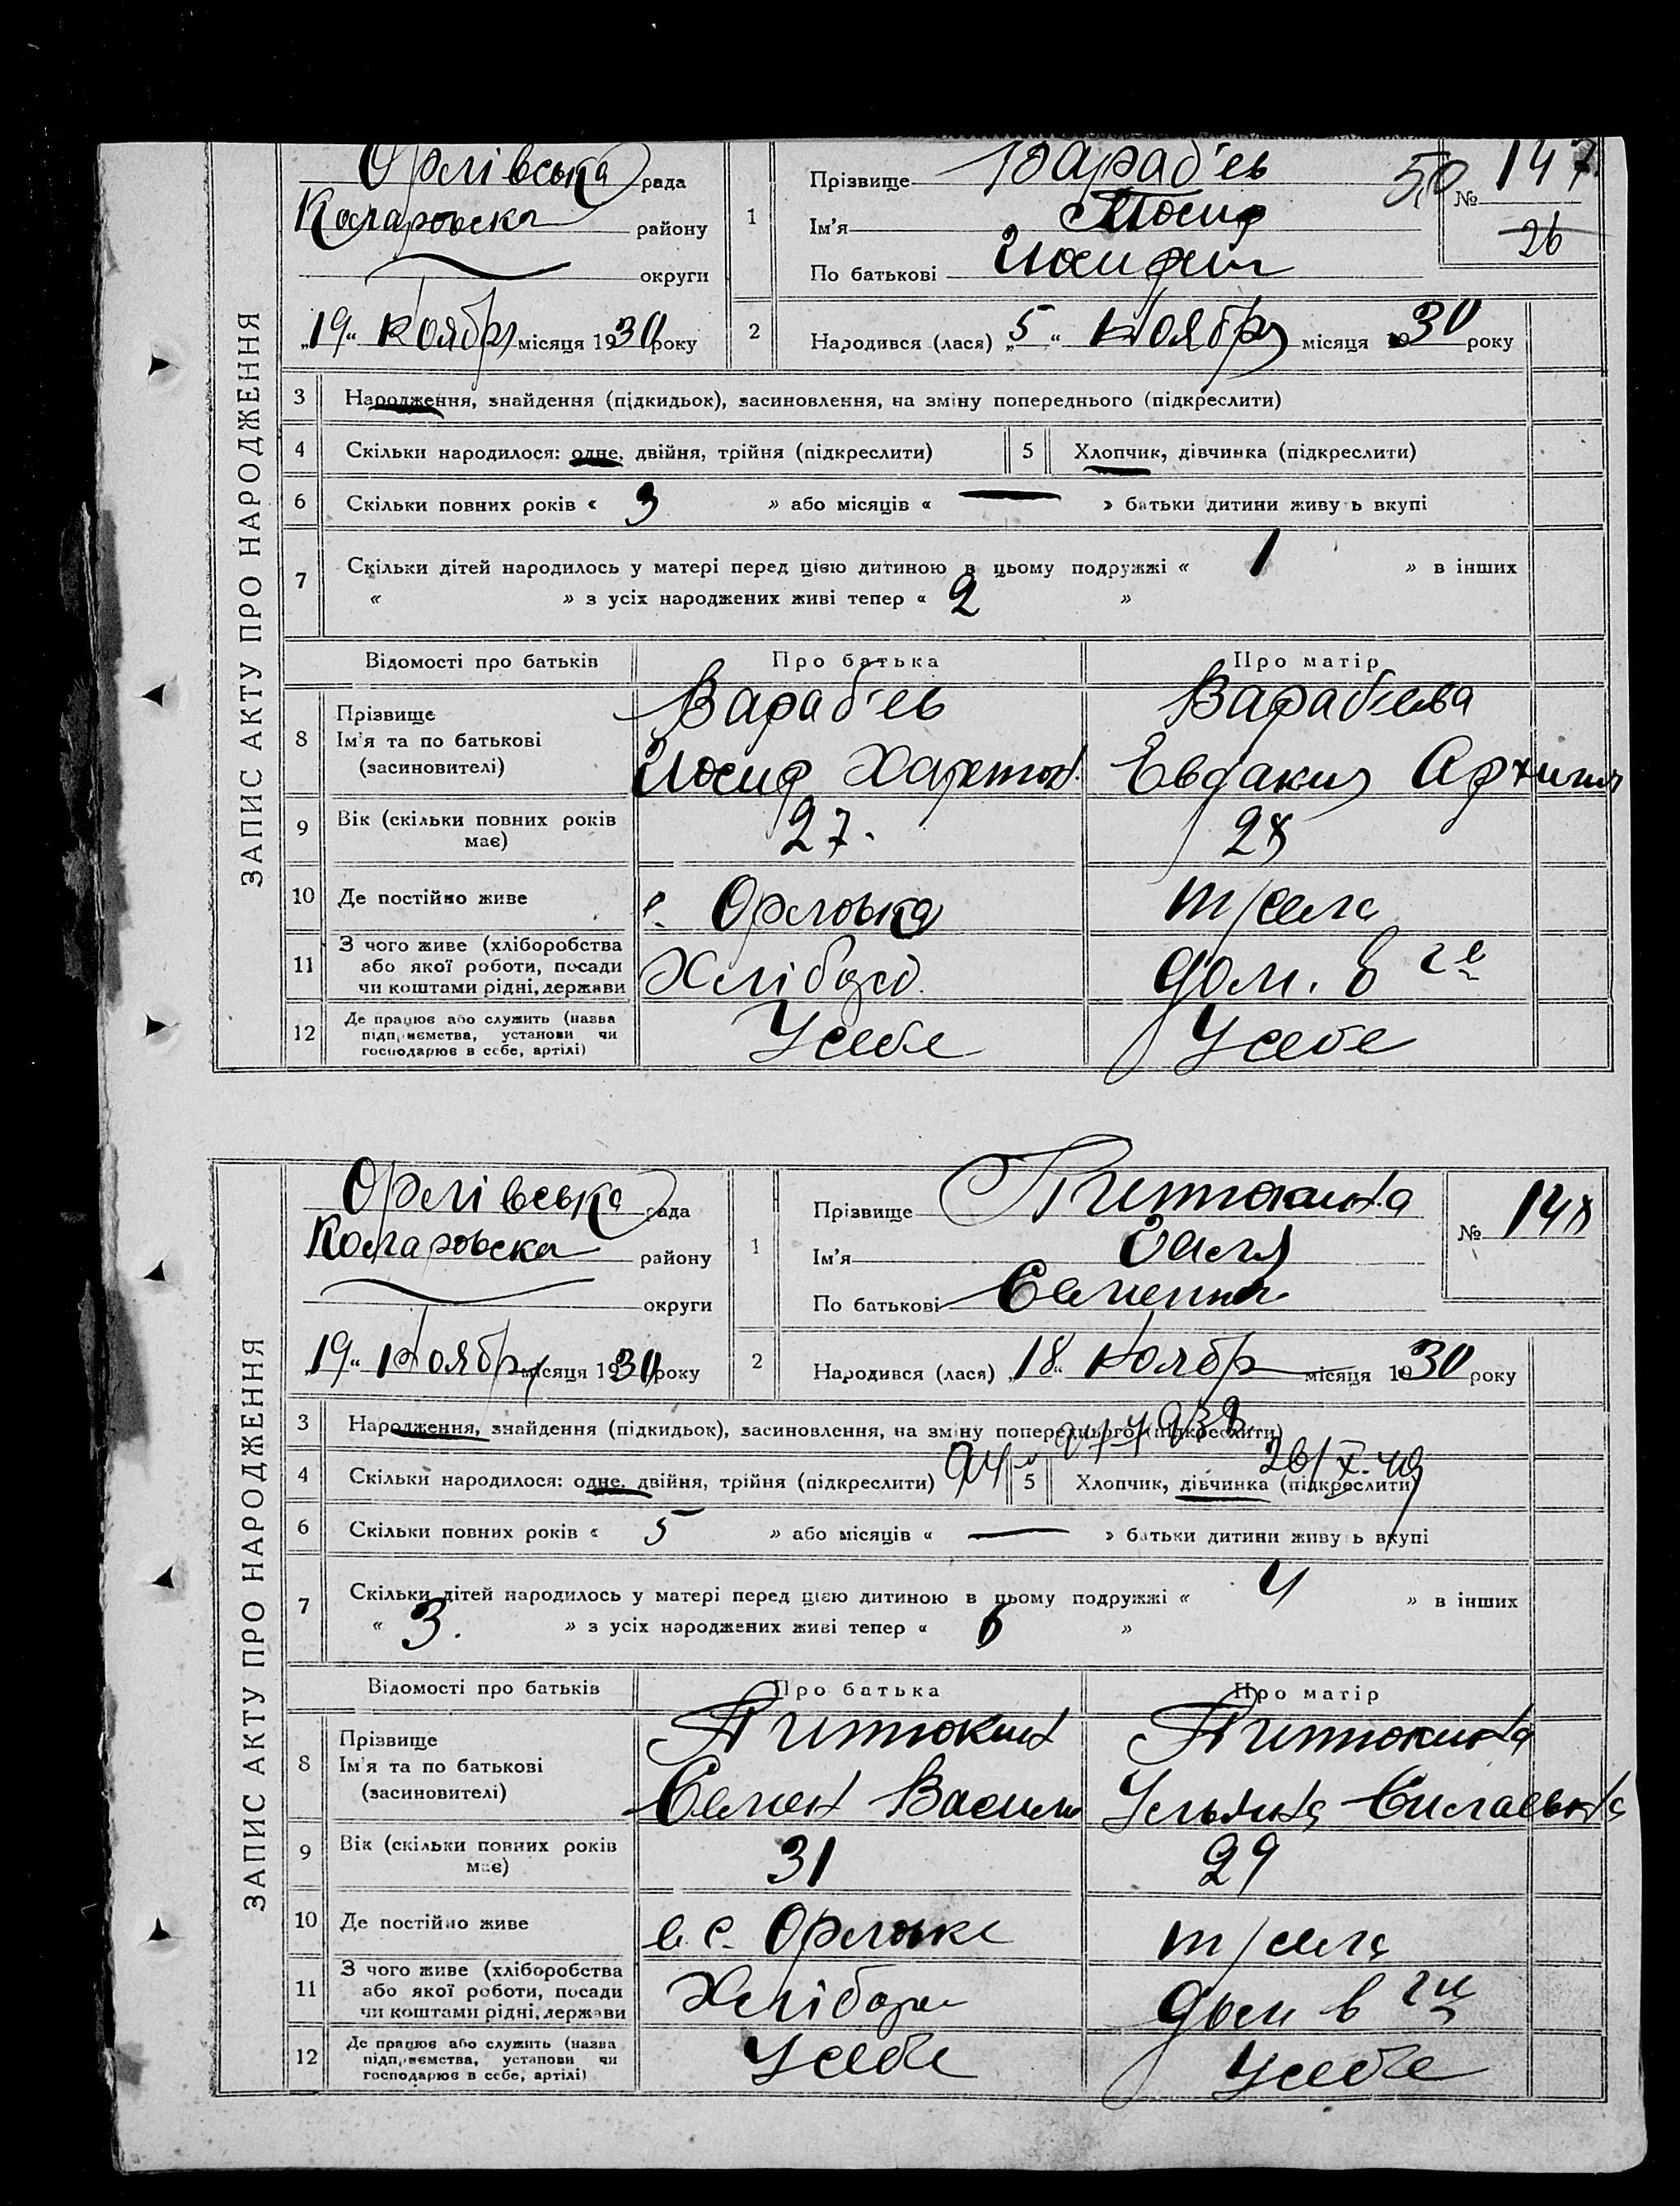 ЗАПИС АКТУ ПРО НАРОДЖЕННЯ
Орлівська рада
Коларовска району
округи
„19“ ноября місяця 1930 року
1
Прізвище Вараб'ев
Ім'я
По батькові
50
№ 147
26
2
Народився (лася) „5“ ноября місяця 1930 року
3 Народження, знайдення (підкидьок), засиновлення, на зміну попереднього (підкреслити)
4 Скільки народилося: одне, двійня, трійня (підкреслити) 5 Хлопчик, дівчинка (підкреслити)
6 Скільки повних років « 3 » або місяців « — » батьки дитини живуть вкупі
7 Скільки дітей народилось у матері перед цією дитиною в цьому подружжі « 1 » в інших
« » з усіх народжених живі тепер « 2 »
Відомості про батьків Про батька Про матір
8 Прізвище Вараб'ев Вараб'ева
Ім'я та по батькові Иосиф Харитон. Евдакия
(засиновителі)
9 Вік (скільки повних років має) 27. 28
10 Де постійно живе с. Орловка т/села
11 З чого живе (хліборобства або якої роботи, посади чи коштами рідні, держави Хлібороб. дом. в
12 Де працює або служить (назва підприємства, установи чи господарює в себе, артілі) У себе У себе
ЗАПИС АКТУ ПРО НАРОДЖЕННЯ
Орлівська рада
Коларовска району
округи
„19“ ноября місяця 1930 року
1
Прізвище Питтюкина
Ім'я
По батькові Семенна
№ 148
2
Народився (лася) „18“ ноябр місяця 1930 року
3 Народження, знайдення (підкидьок), засиновлення, на зміну попереднього (підкреслити)
4 Скільки народилося: одне, двійня, трійня (підкреслити) 5 Хлопчик, дівчинка (підкреслити)
6 Скільки повних років « 5 » або місяців « — » батьки дитини живуть вкупі
7 Скільки дітей народилось у матері перед цією дитиною в цьому подружжі « 4 » в інших
« 3. » з усіх народжених живі тепер « 6 »
Відомості про батьків Про батька Про матір
8 Прізвище Питтюкин Питтюкина
Ім'я та по батькові Семен Васили Ульяна Силаевна
(засиновителі)
9 Вік (скільки повних років має) 31 29
10 Де постійно живе в с. Орловке т/села
11 З чого живе (хліборобства або якої роботи, посади чи коштами рідні, держави дом в
12 Де працює або служить (назва підприємства, установи чи господарює в себе, артілі) У себе У себе